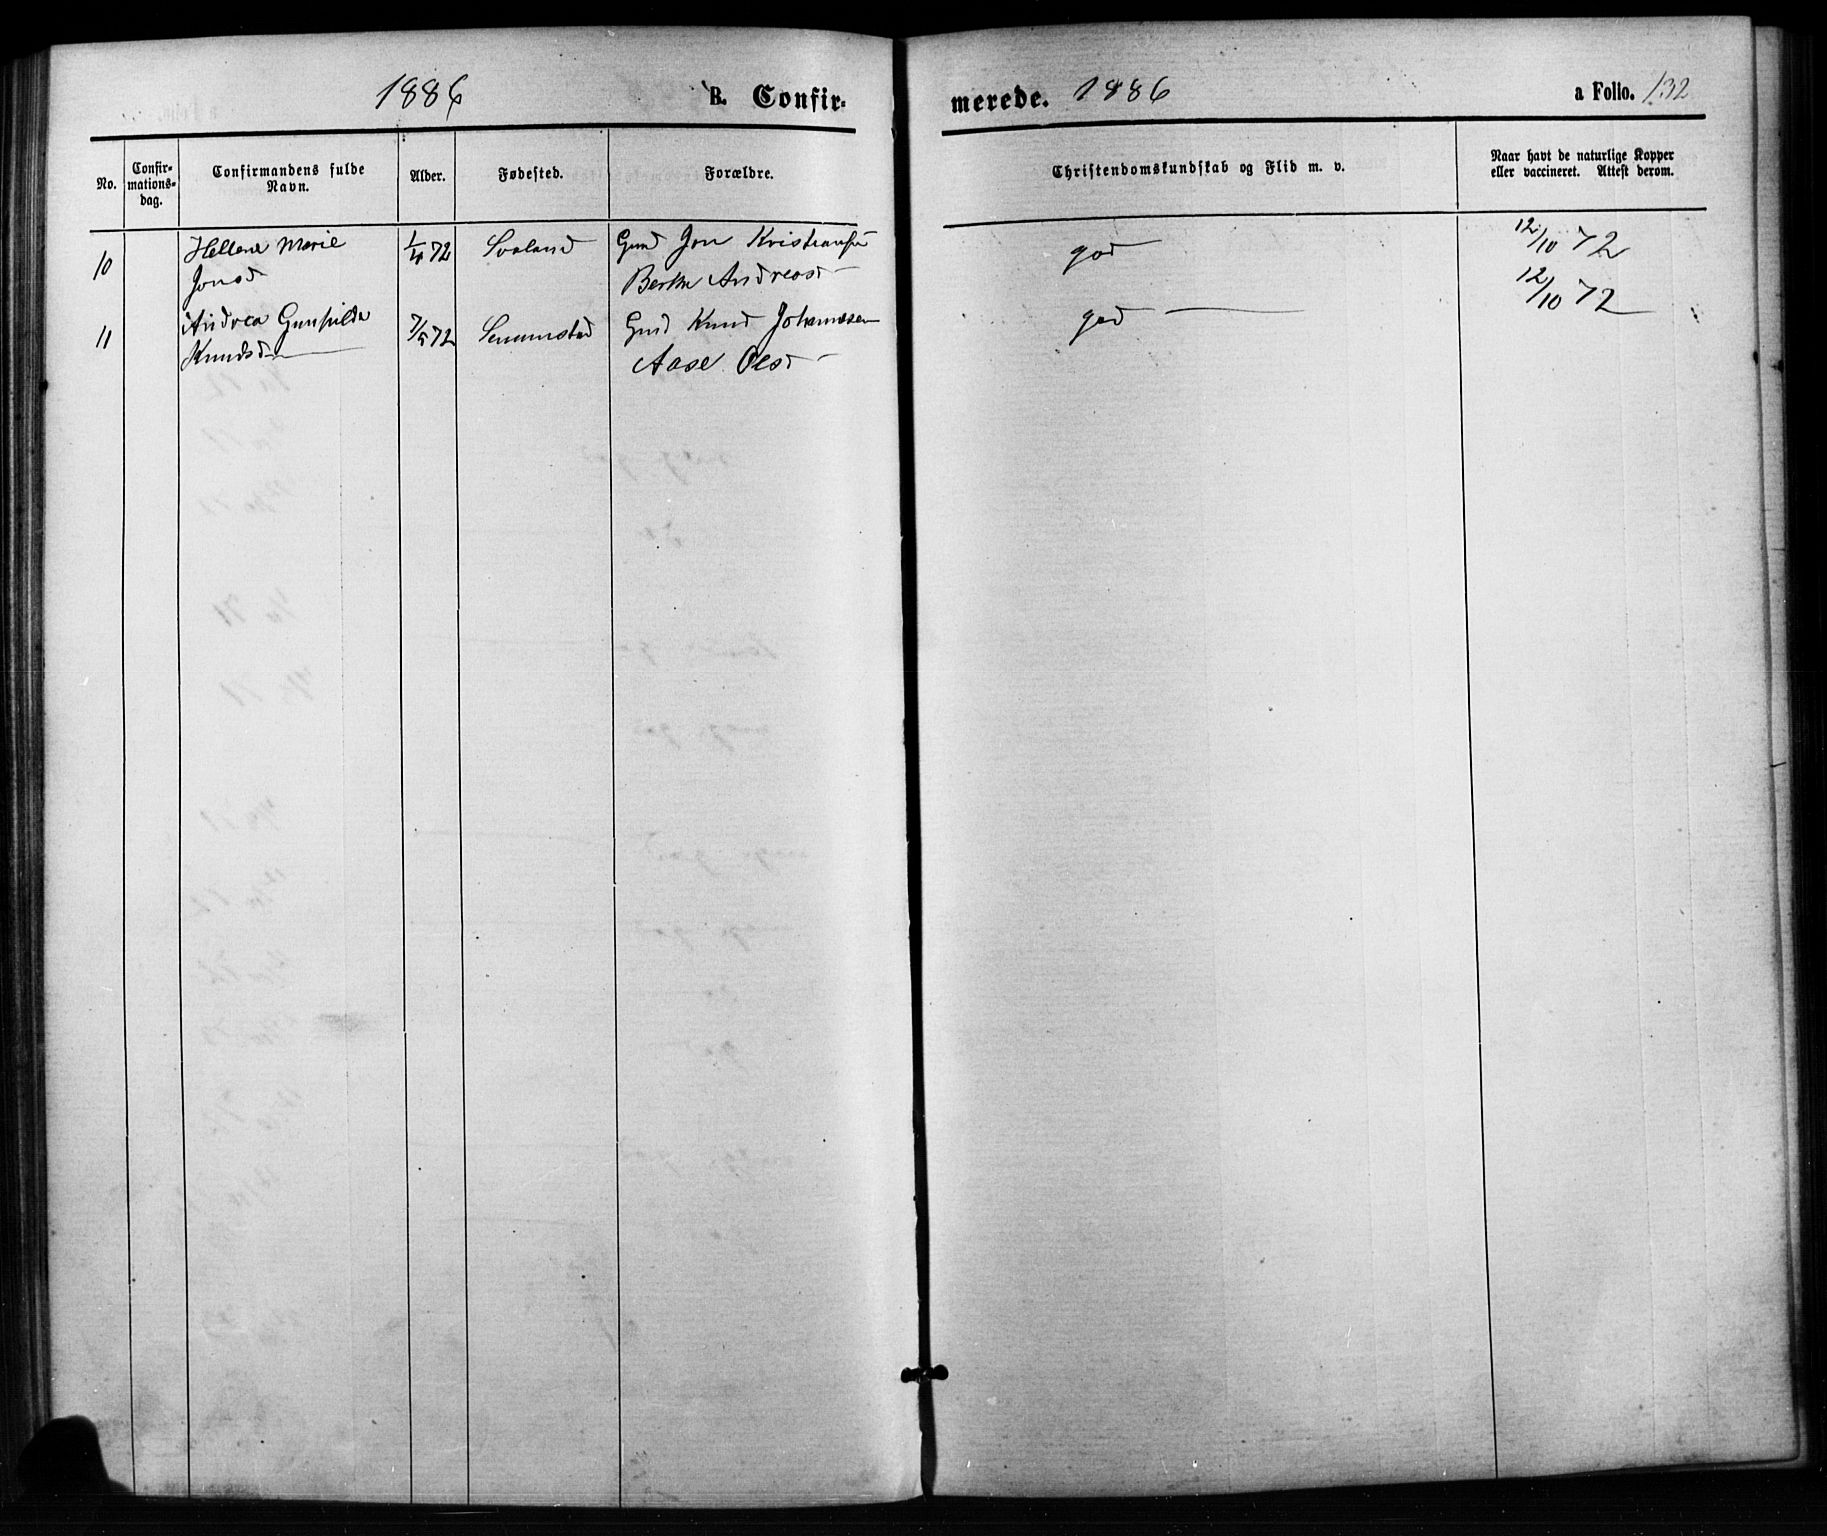 1886 B. Confir-
merede. 1886 a Folio. 132
No.
Confir-
mations-
dag.
Confirmandens fulde
Navn.
Alder.
Fødested.
Forældre.
Christendomskundskab og Flid m. v.
Naar havt de naturlige Kopper
eller vaccineret. Attest derom.
10 Hellene Marie 72 Svaland Gmd Jon god 12/10 72
Jonsd Berthe Andreasd
11 Andrea Gunhilda 7/5 72 Gmd Knud Johannesen god 12/10 72
Knudsd Aase Olsd